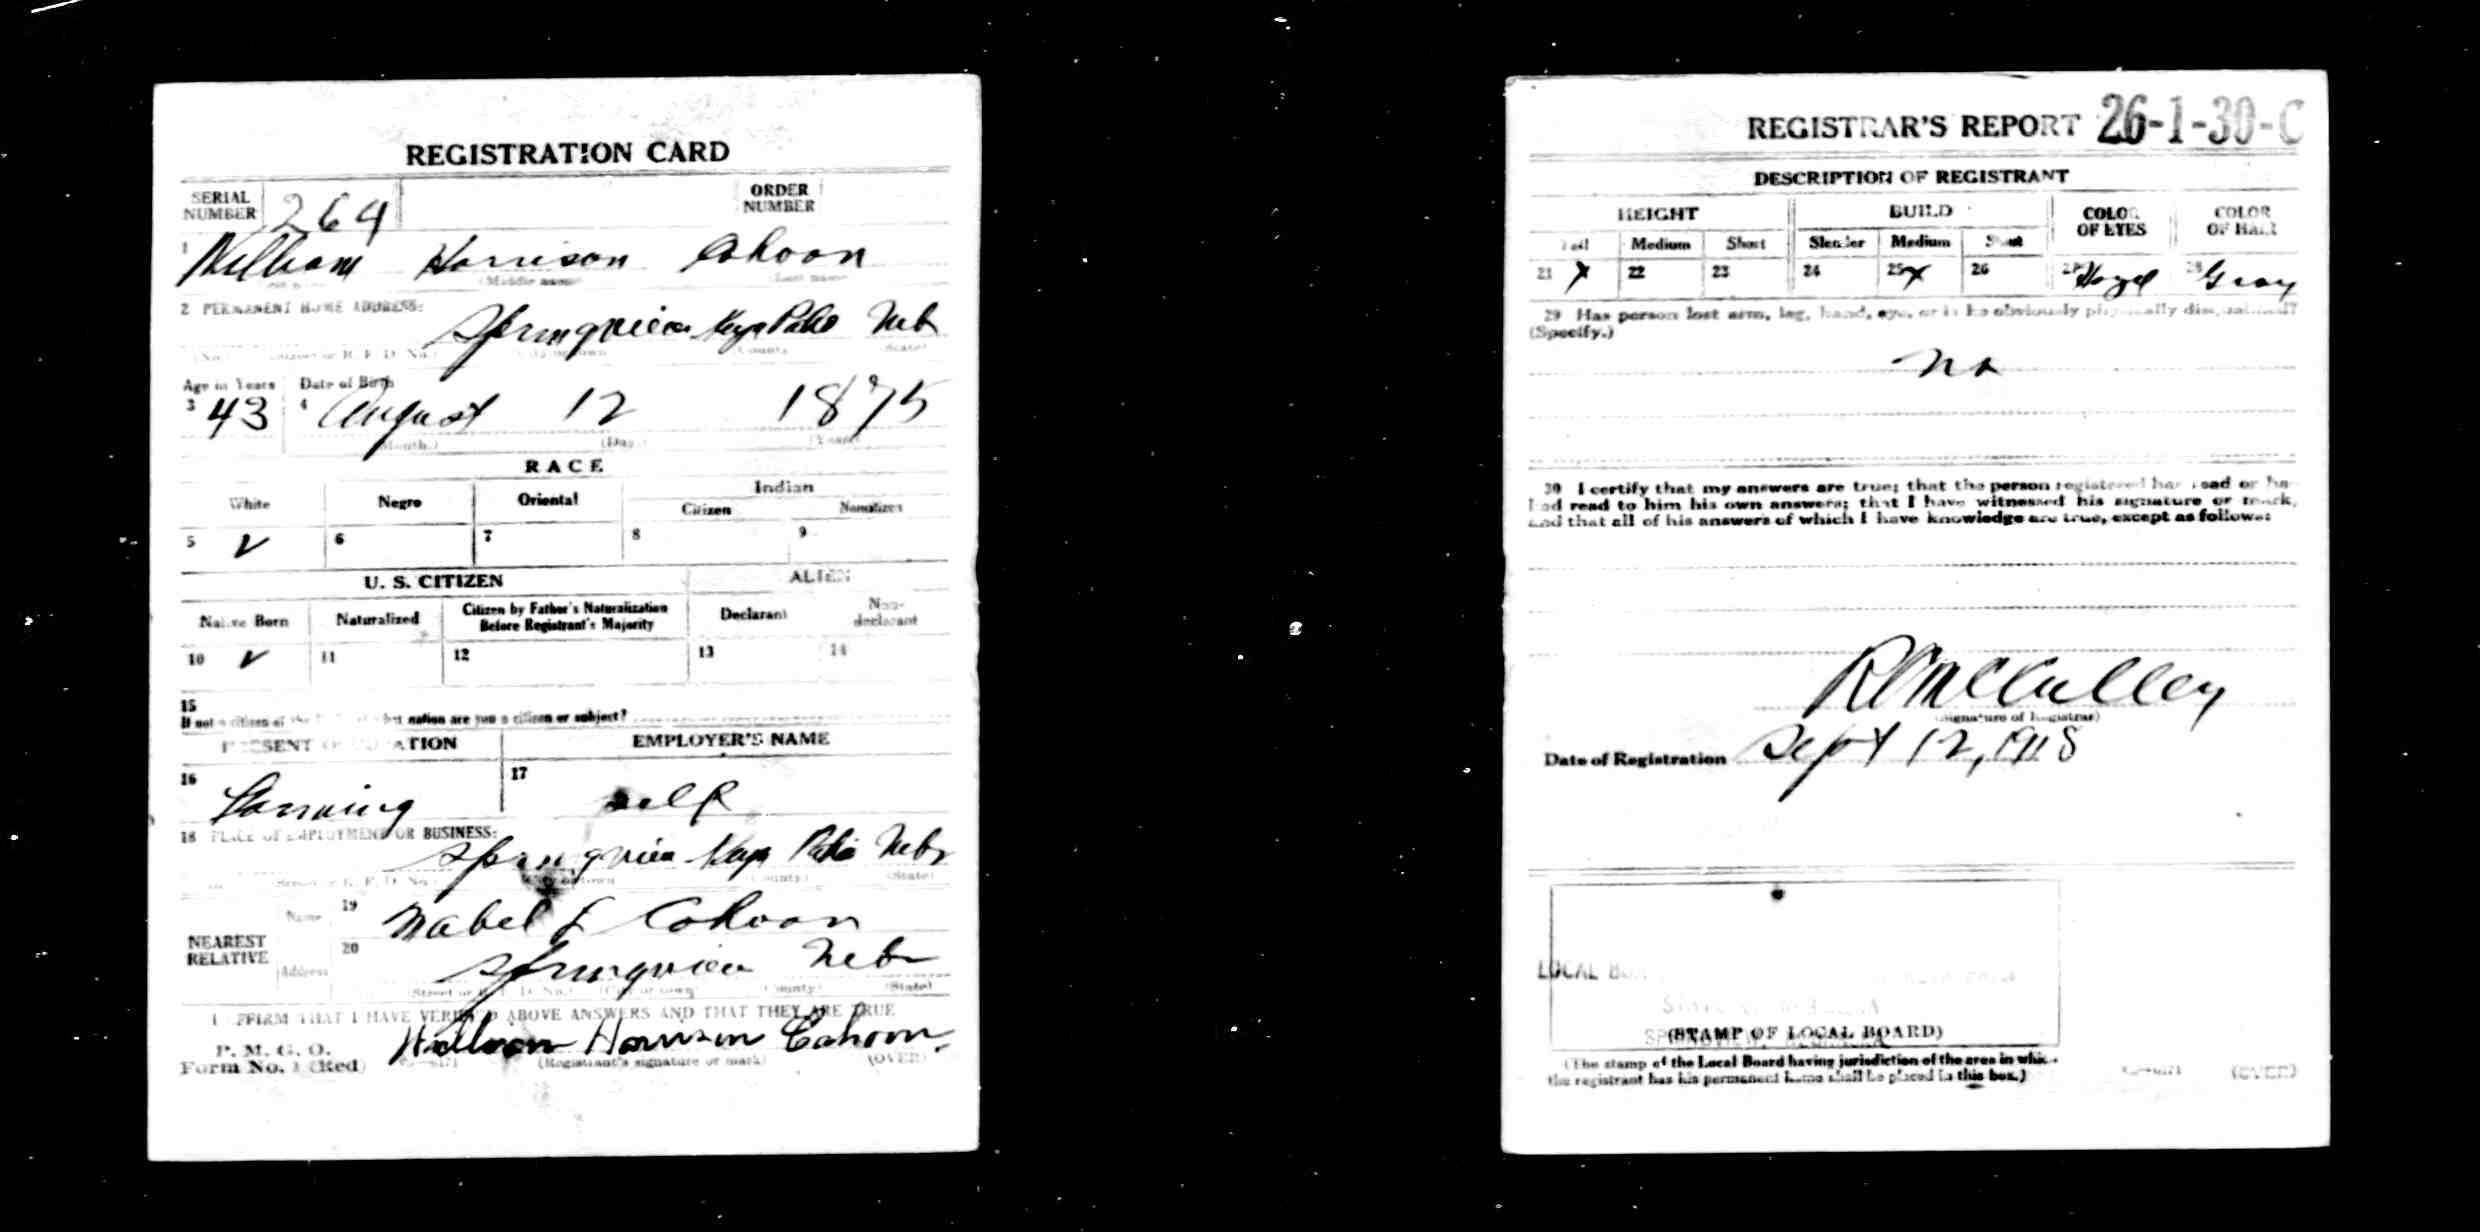 REGISTRATION CARD
SERIAL NUMBER 264 ORDER NUMBER
1 William Harrison Cohoon
(Middle name) (Last name)
2 PERMANENT HOME ADDRESS:
Springview Keya Paha Neb
(No.) (Street or R. F. D. No.) (City or town) (County) (State)
Age in Years Date of Birth
3 43 4 August 12 1875
(Month.) (Day.) (Year)
RACE
White Negro Oriental Indian
Citizen Noncitizen
5 ✓ 6 7 8 9
U. S. CITIZEN ALIEN
Native Born Naturalized Citizen by Father's Naturalization Before Registrant's Majority Declarant Non-declarant
10 ✓ 11 12 13 14
15
If not a citizen of the U. S., of what nation are you a citizen or subject?
PRESENT OCCUPATION EMPLOYER'S NAME
16 Farming 17 self
18 PLACE OF EMPLOYMENT OR BUSINESS:
Springview Keya Paha Nebr
(No.) (Street or R. F. D. No.) (City or town) (County) (State)
NEAREST RELATIVE Name 19 Mabel L Cohoon
Address 20 Springview Nebr
(Street or R. F. D. No.) (City or town) (County) (State)
I AFFIRM THAT I HAVE VERIFIED ABOVE ANSWERS AND THAT THEY ARE TRUE
P. M. G. O.
Form No. 1 (Red) William Harrison Cohoon
(Registrant's signature or mark) (OVER)
REGISTRAR'S REPORT 26-1-30-C
DESCRIPTION OF REGISTRANT
HEIGHT BUILD COLOR OF EYES COLOR OF HAIR
Tall Medium Short Slender Medium Stout
21 x 22 23 24 25 x 26 27 Hazel 28 Gray
29 Has person lost arm, leg, hand, eye, or is he obviously physically disqualified?
(Specify.)
no
30 I certify that my answers are true; that the person registered has read or has
had read to him his own answers; that I have witnessed his signature or mark,
and that all of his answers of which I have knowledge are true, except as follows:
R C McCulley
(Signature of Registrar)
Date of Registration Sept 12, 1918
LOCAL BOARD
STATE OF NEBRASKA
SPRINGVIEW, NEBRASKA
(STAMP OF LOCAL BOARD)
(The stamp of the Local Board having jurisdiction of the area in which
the registrant has his permanent home shall be placed in this box.)
(OVER)